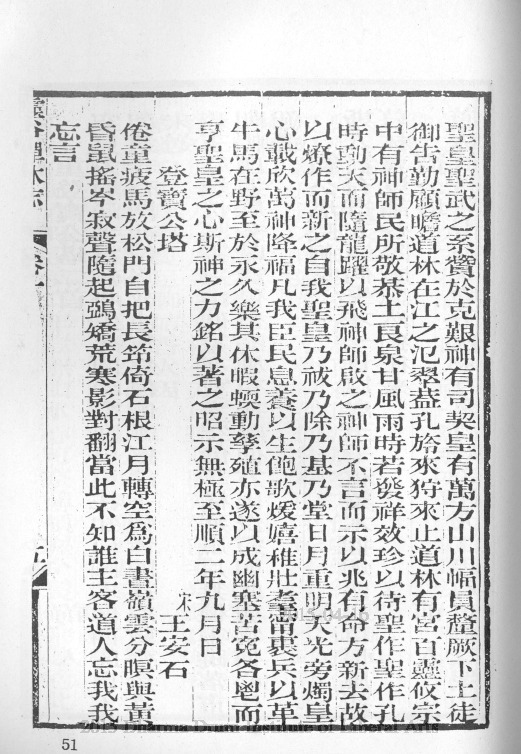 聖皇聖武之系贊於克艱神有司契皇有萬方山川幅員釐厥下土徒
御告勤顧瞻道林在江之氾翠蓋孔旍來狩來止道林有宮百靈攸宗
中有神師民所敬恭土良泉甘風雨時若發祥效珍以待聖作聖作孔
時動天而隨龍躍以飛神師啟之神師不言而示以兆有命方新去故
以燎作而新之自我聖皇乃祓乃除乃基乃堂日月重明天光旁燭皇
心載欣萬神降福凡我臣民息養以生飽歌煖嬉稚壯耋甯裹兵以革
牛馬在野至於永久樂其休暇蝡動孳殖亦遂以成幽塞苦冤各鬯而
亨聖皇之心斯神之力銘以著之昭示無極至順二年九月日
登寶公塔
宋王安石
倦童疲馬放松門自把長筇倚石根江月轉空為白晝嶺雲分暝與黃
昏鼠搖岑寂聲隨起鵶矯荒寒影對翻當此不知誰主客道人忘我我
忘言
靈谷禪林志
卷十
51
2013 Dharma Drum Institute of Liberal Arts